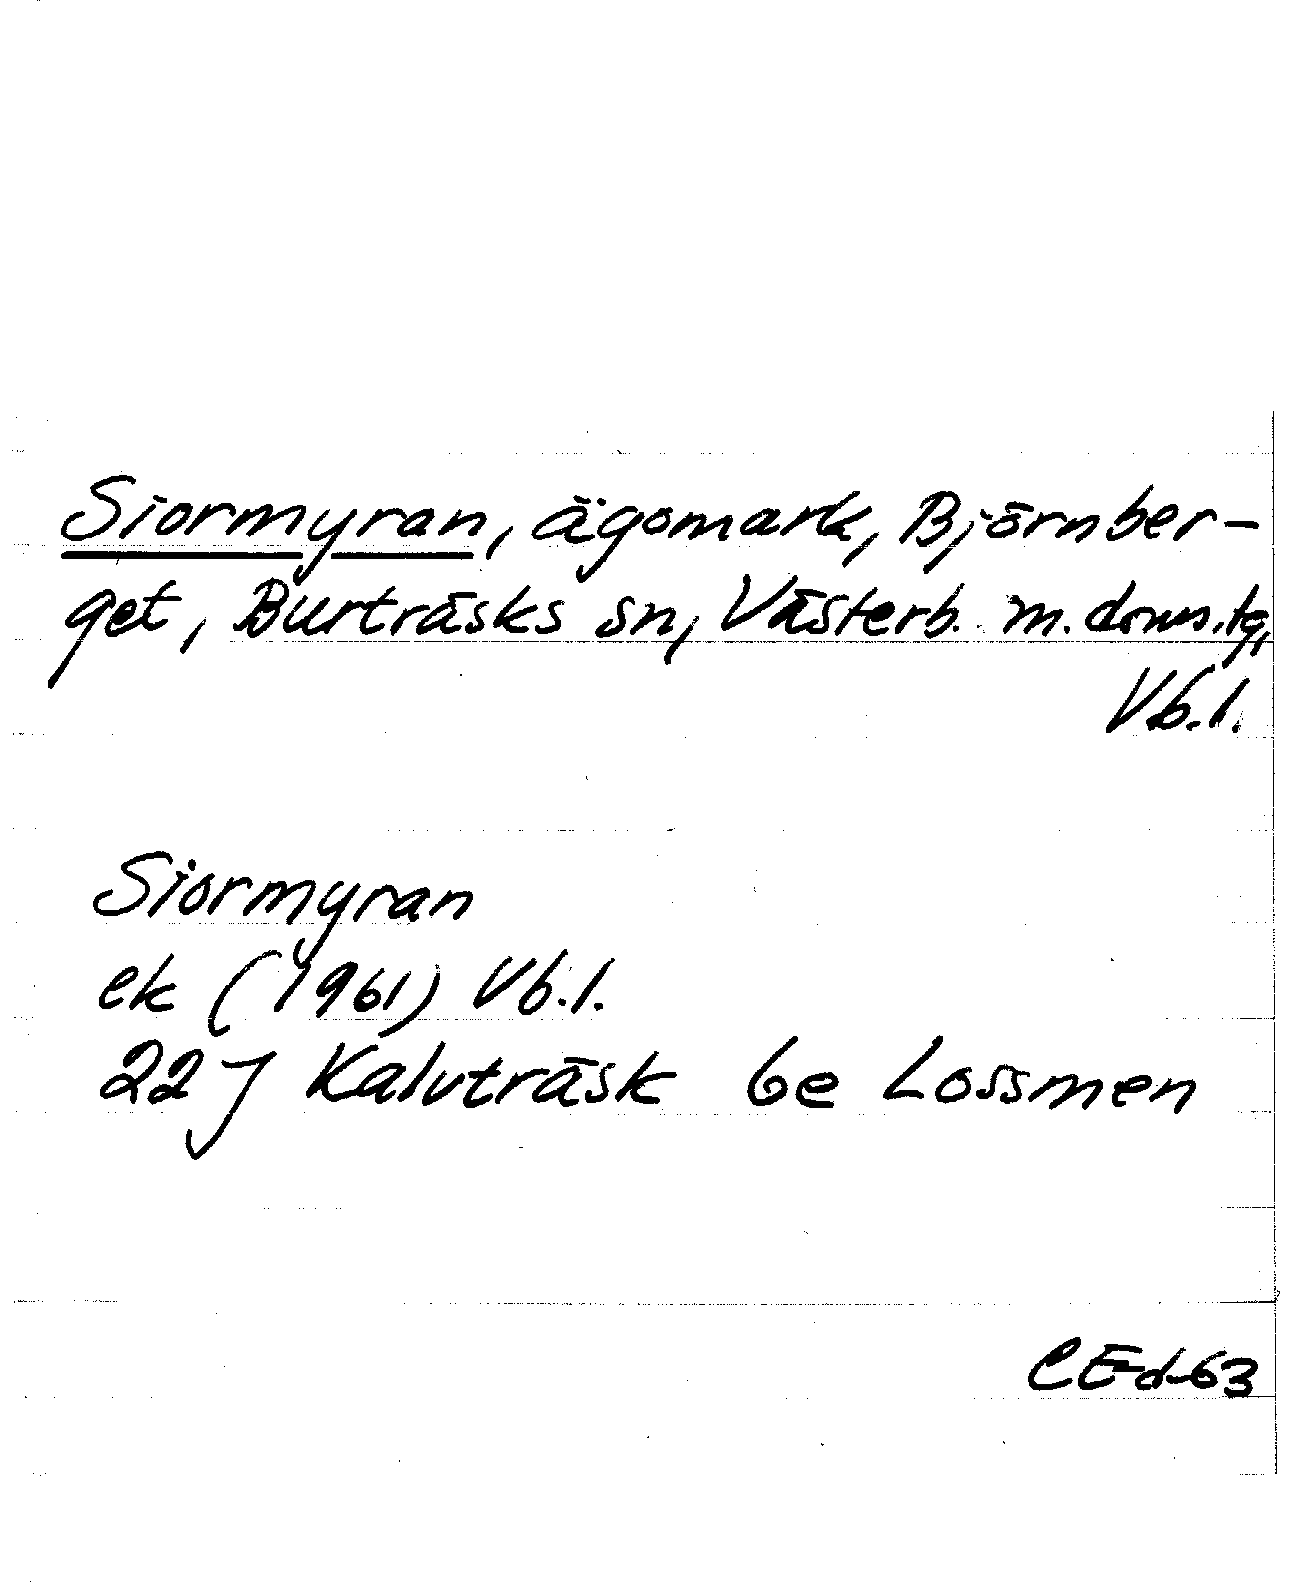 Siormyran, ägomark, Björnber-
get, Burträsks sn, Västerb. m. doms.tg,
Vb.l.
Siormyran
ek (1961) Vb.l.
22J Kalvträsk 6e Lossmen
CEd-63